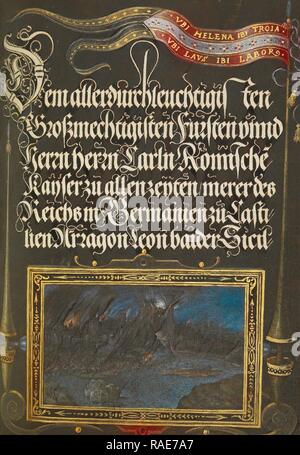 VBI HELENA IBI TROIA
VBI LAVS IBI LABOR
Dem allerdurchleuchtigisten
Großmechtigisten Fursten vnnd
Herrn herrn Carln Römische
Kayser zu allen zeyten merer des
Reichs in Germanien zu Casti
lien Arragon Leon baider Sicil
alamy
Image ID: RAE7A7
www.alamy.com